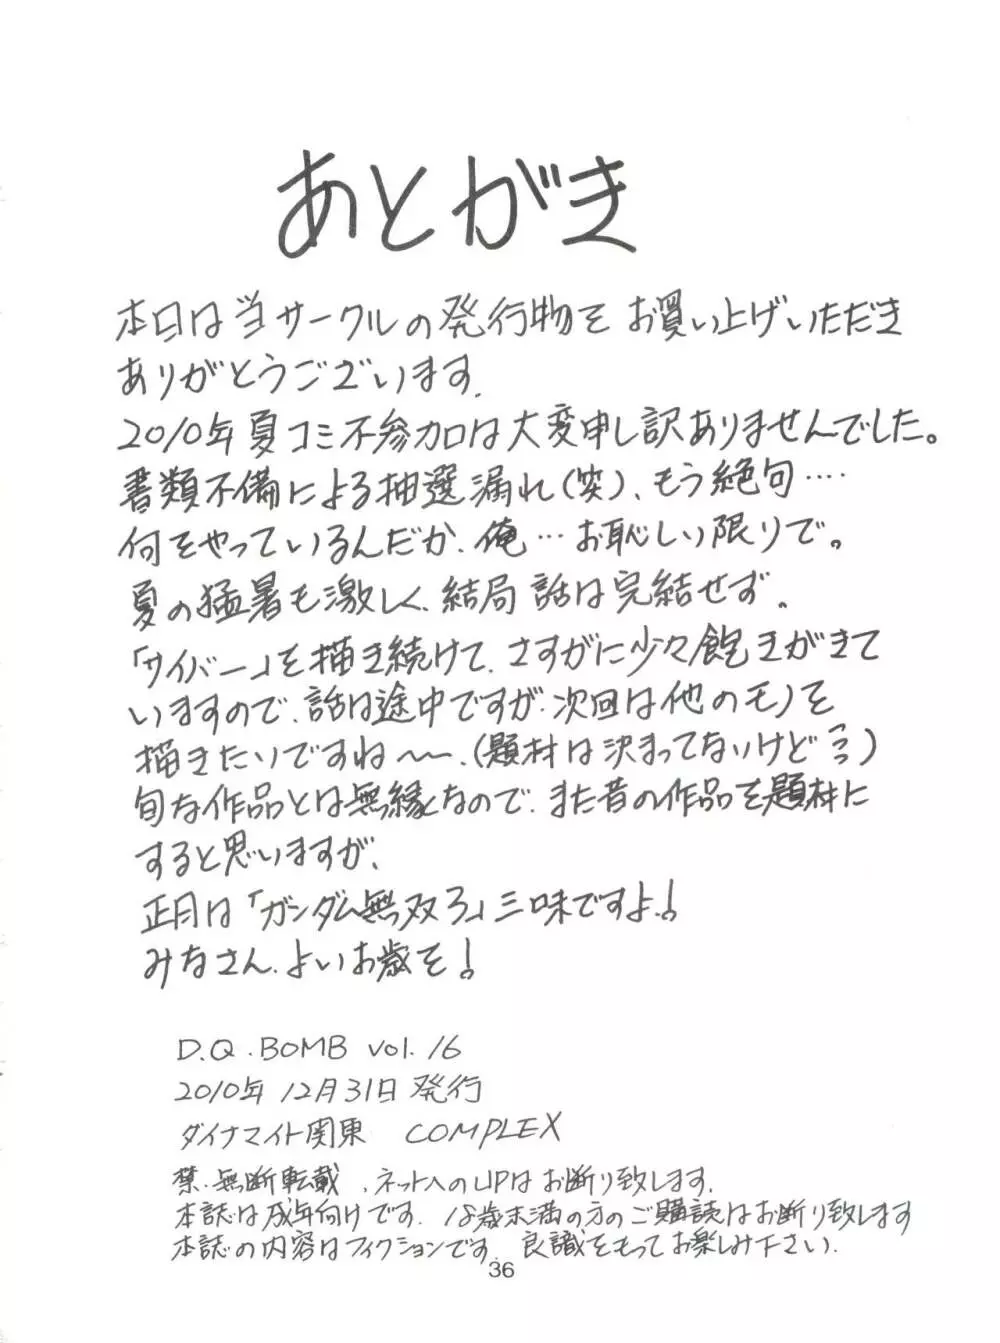 あとがき
本日は当サークルの発行物をお買い上げいただき
ありがとうございます.
2010年夏コミ不参加は大変申し訳ありませんでした。
書類不備による抽選漏れ(笑)、もう絶句‥‥
何をやっているんだか、俺…お恥しい限りで。
夏の猛暑も激しく、結局話は完結せず。
「サイバー」を描き続けて、さすがに少々飽きがきて
いますので、話は途中ですが、次回は他のモノを
描きたいですね〜〜、(題材は決まってないけど)
旬な作品とは無縁なので、また昔の作品を題材に
すると思いますが、
正月は「ガンダム無双3」三味ですよ!
みなさん、よいお歳を!
D.Q.BOMB vol.16
2010年12月31日発行
ダイナマイト関東 COMPLEX
禁・無断転載、ネットへのUPはお断り致します.
本誌は成年向けです、18歳未満の方のご購読はお断り致します
本誌の内容はフィクションです、良識をもってお楽しみ下さい.
36